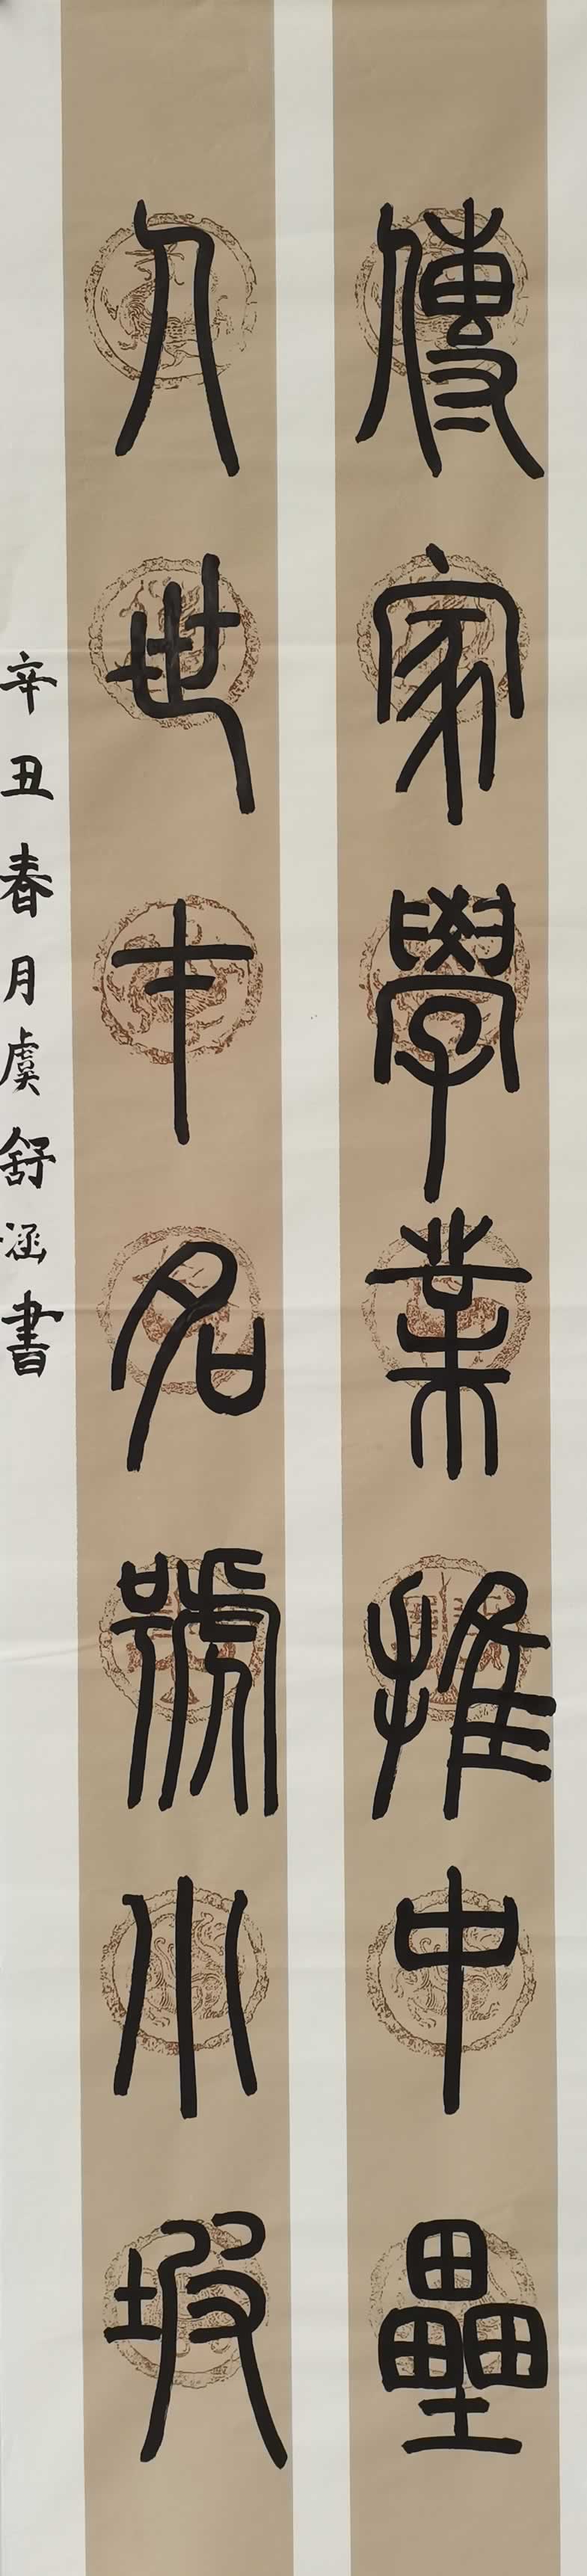 傳家學業推中壘
入世才名號小坡
辛丑春月虞舒涵書